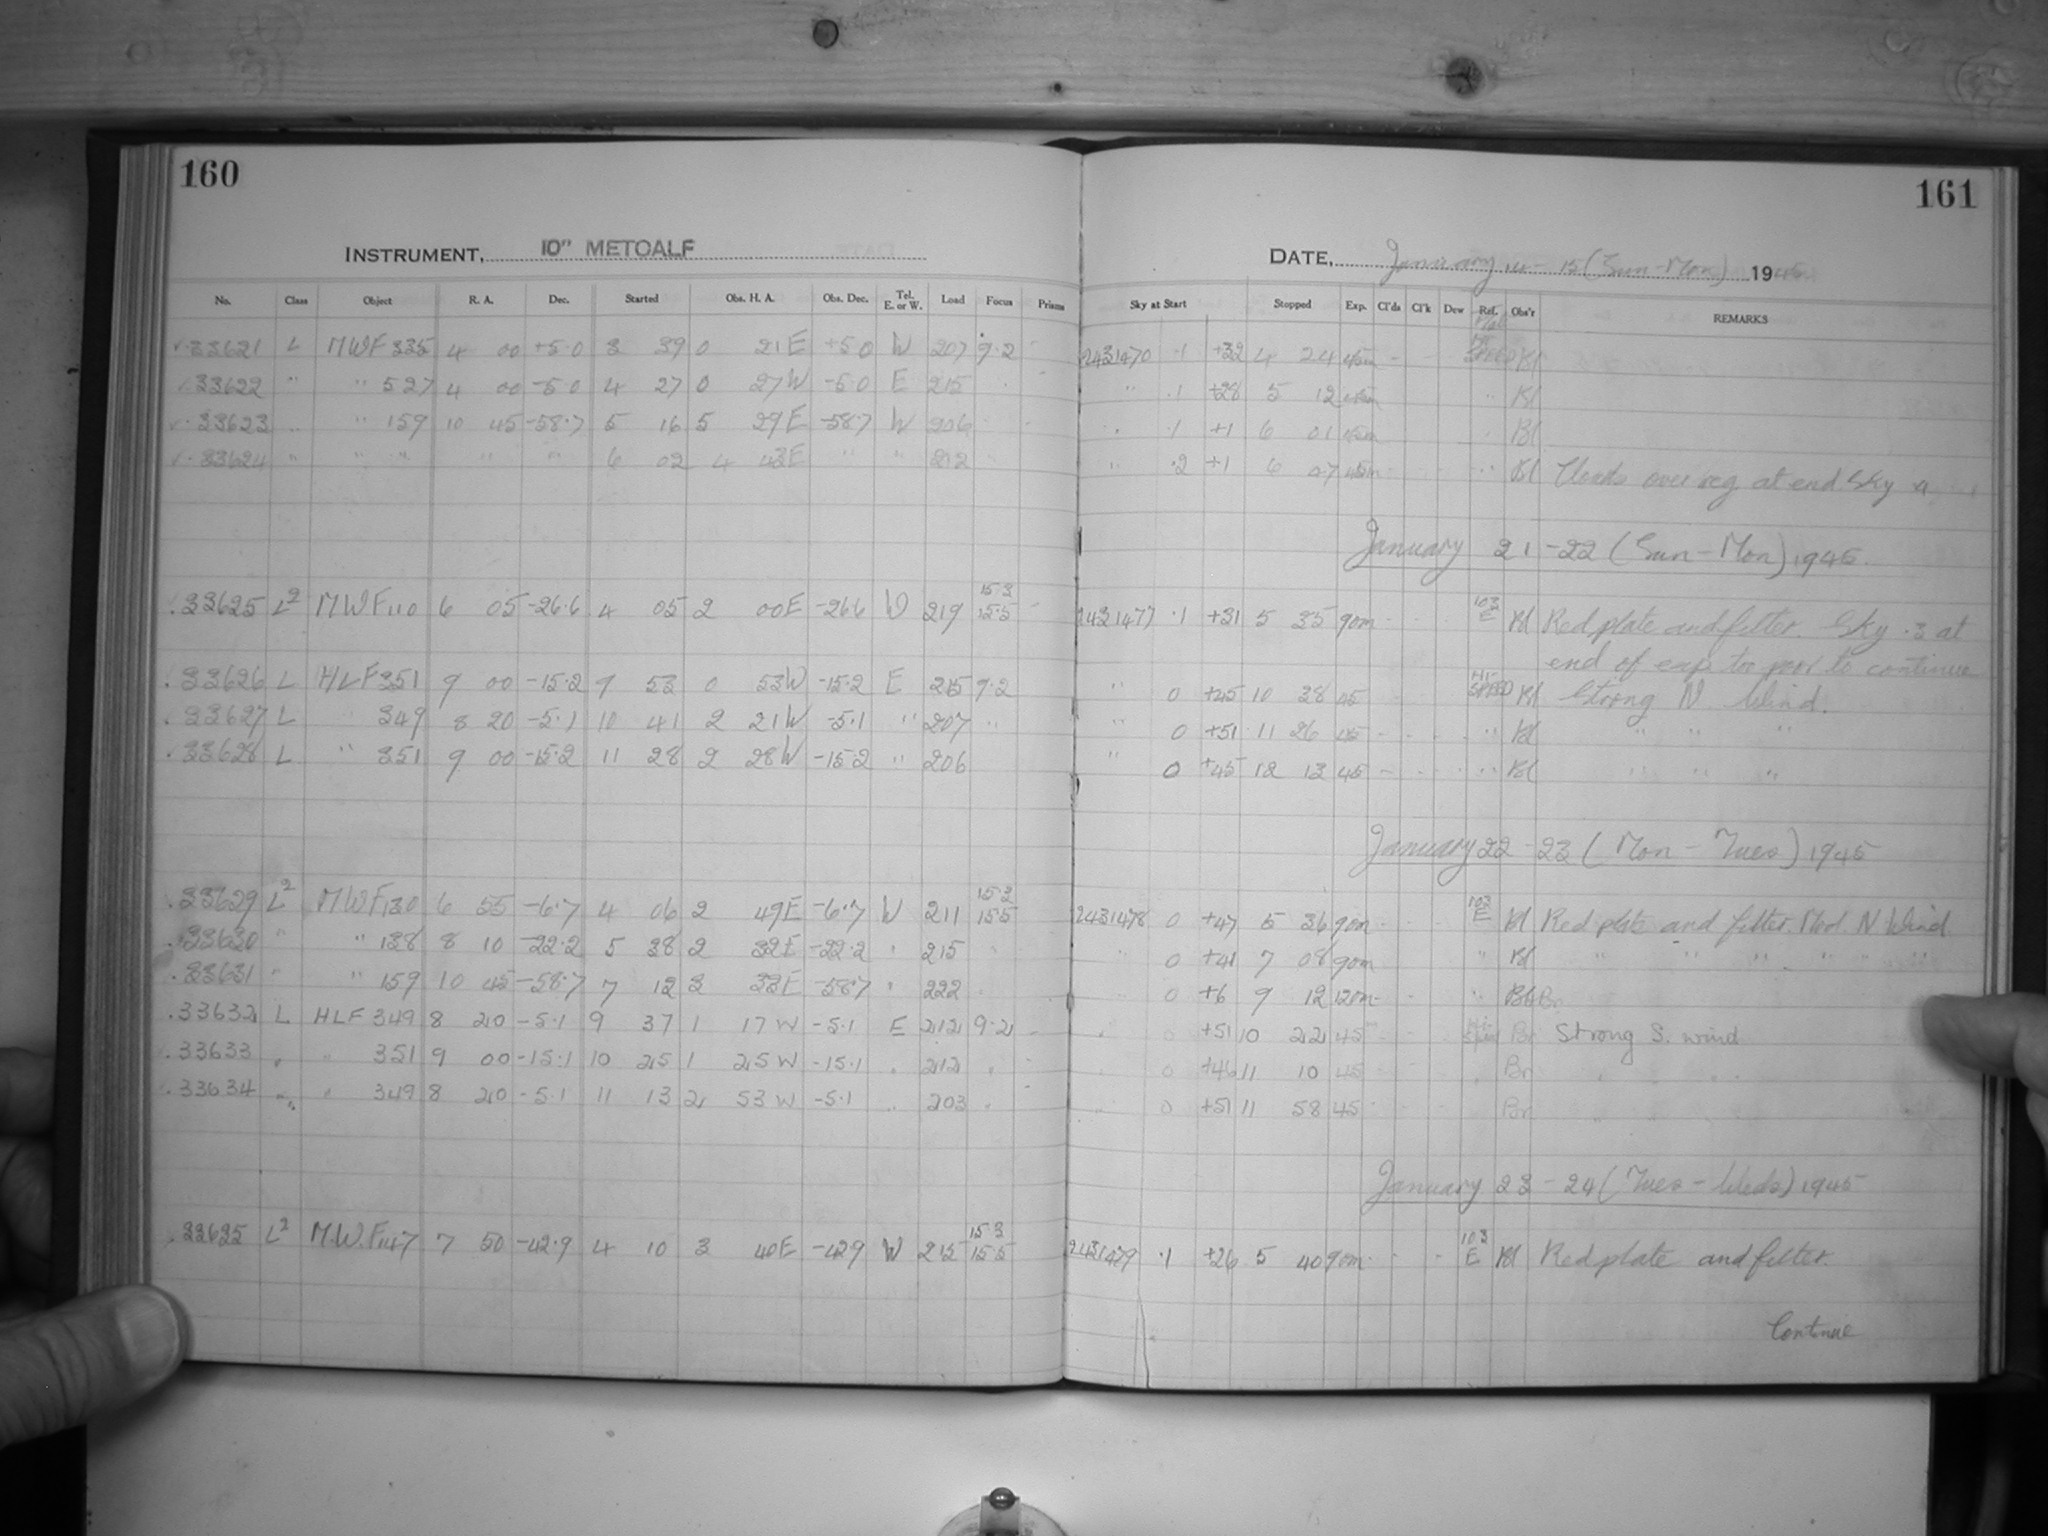 160
161
INSTRUMENT, 10" METCALF
DATE, January 14 - 15 (Sun-Mon) 1945
No. Class Object R. A. Dec. Started Obs. H. A. Obs. Dec. Tel. E. or W. Load Focus Prisms Sky at Start Stopped Exp. Cl'ds Cl'k Dew Ref. Obs'r REMARKS
33621 L MWF 335 4 00 +5.0 3 39 0 21E +5.0 W 207 9.2 2431470 .1 +32 4 24 45m HI-SPEED Bl
33622 " " 527 4 00 -5.0 4 27 0 27W -5.0 E 215 " .1 +28 5 12 45m " Bl
33623 " " 159 10 45 -58.7 5 16 5 29E -58.7 W 206 " .1 +1 6 01 45m " Bl
33624 " " " " " 6 02 4 43E " " 212 " .2 +1 6 07 " Bl Clouds over reg at end Sky .4
January 21-22 (Sun-Mon) 1945.
33625 L² MWF 110 6 05 -26.6 4 05 2 00E -26.6 W 219 15.3 15.5 2431477 .1 +31 5 35 90m 103 E Bl Red plate and filter. Sky .3 at
end of exp. too poor to continue
33626 L HLF 351 9 00 -15.2 9 53 0 53W -15.2 E 215 9.2 " 0 +45 10 38 45 HI-SPEED Bl Strong N. Wind.
33627 L " 349 8 20 -5.1 10 41 2 21W -5.1 " 207 " " 0 +51 11 26 45 " Bl " " "
33628 L " 351 9 00 -15.2 11 28 2 28W -15.2 " 206 " 0 +45 12 13 45 " Bl " " "
January 22-23 (Mon-Tues) 1945
33629 L² MWF 130 6 55 -6.7 4 06 2 49E -6.7 W 211 15.3 15.5 2431478 0 +47 5 36 90m 103 E Bl Red plate and filter. Mod. N. Wind.
33630 " " 138 8 10 -22.2 5 38 2 32E -22.2 " 215 " 0 +41 7 08 90m " Bl " " " " " "
33631 " " 159 10 45 -58.7 7 12 3 33E -58.7 " 222 " 0 +6 9 12 120m " Bl Br
33632 L HLF 349 8 20 -5.1 9 37 1 17W -5.1 E 212 9.2 " 0 +51 10 22 45 Hi-Speed Br Strong S. wind
33633 " " 351 9 00 -15.1 10 25 1 25W -15.1 " 212 " " 0 +46 11 10 45 " Br " " "
33634 " " 349 8 20 -5.1 11 13 2 53W -5.1 " 203 " " 0 +51 11 58 45 Br " " "
January 23-24 (Tues-Weds) 1945
33635 L² M.W.F 147 7 50 -42.9 4 10 3 40E -42.9 W 215 15.3 15.5 2431479 .1 +26 5 40 90m 103 E Bl Red plate and filter.
Continue